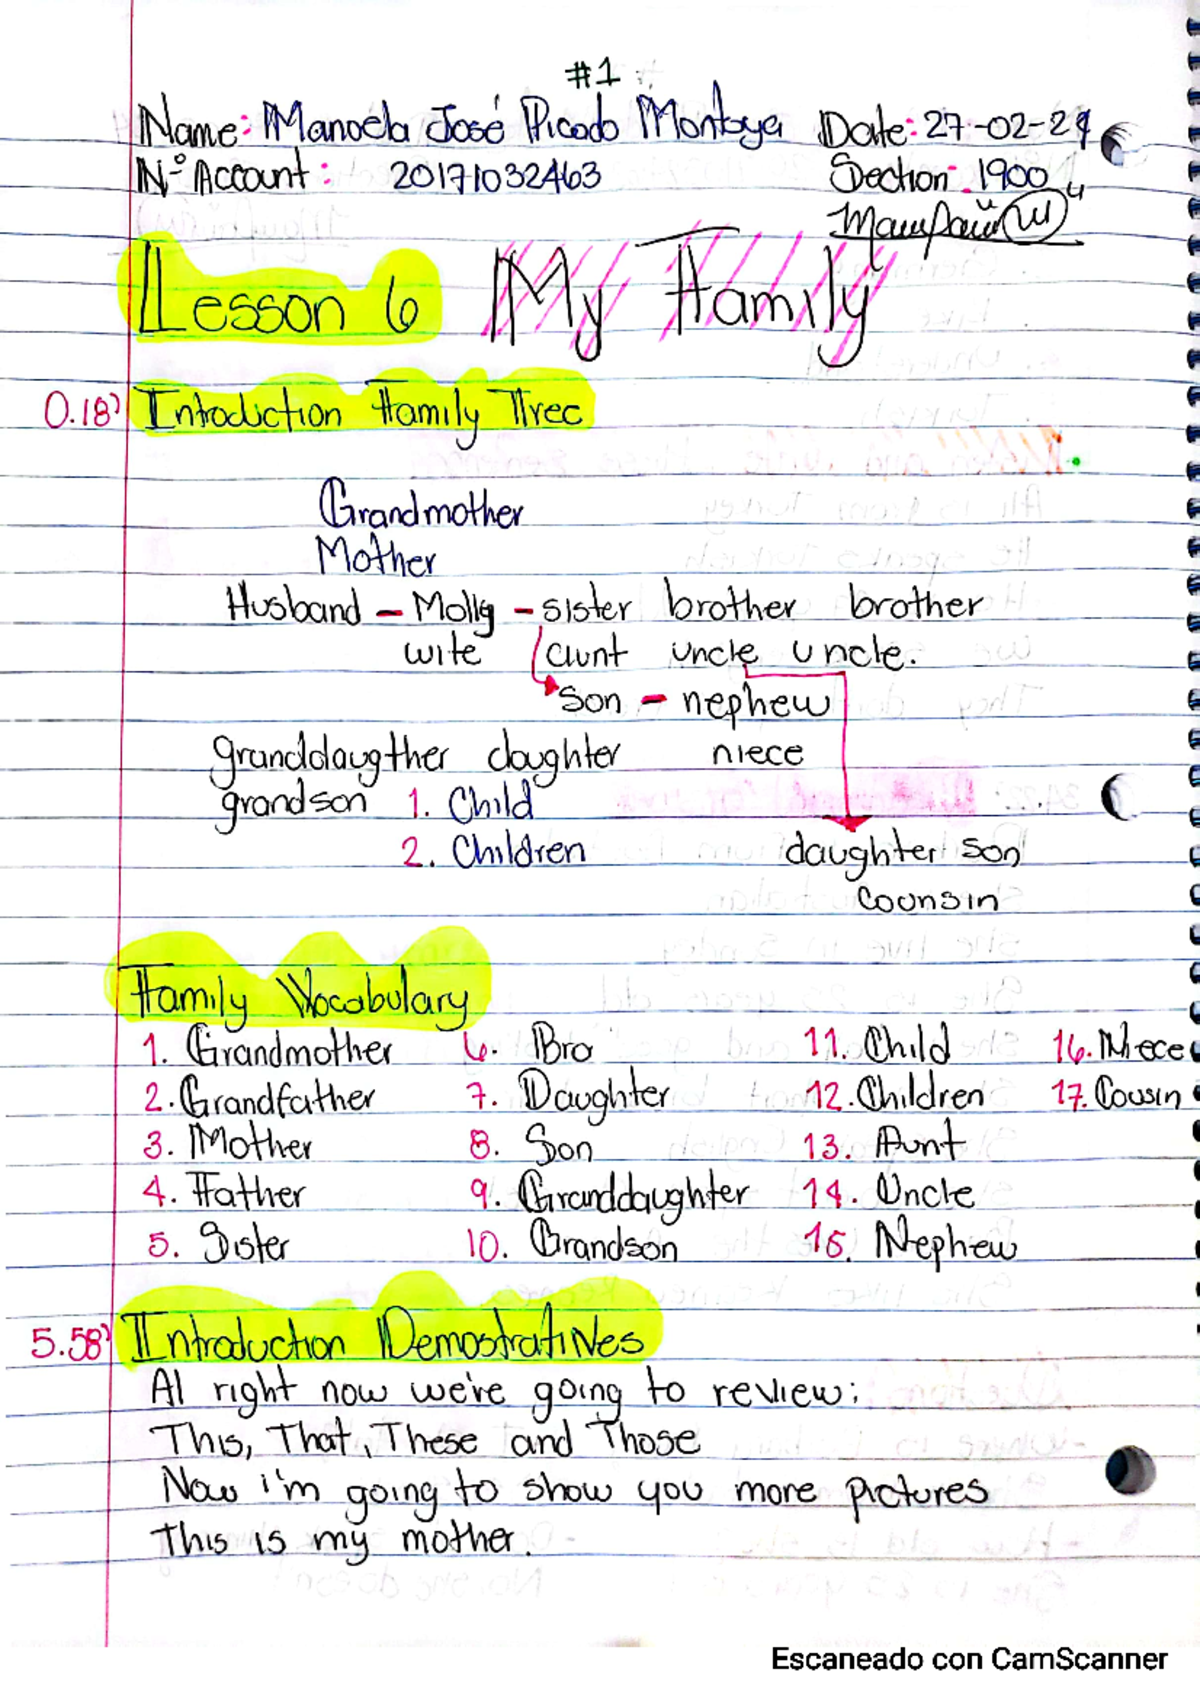 #1
Name: Manoela José Picado Montoya Date: 27-02-24
N° Account: 20171032463 Section: 1900
Lesson 6 My Family
0.18' Intoduction Family Tree
Grandmother
Mother
Husband - Molly - sister brother brother
wife aunt uncle uncle.
son - nephew
granddaugther daughter niece
grandson 1. Child
2. Children daughter son
Counsin
Family Vocabulary
1. Grandmother 6. Bro 11. Child 16. Niece
2. Grandfather 7. Daughter 12. Children 17. Cousin
3. Mother 8. Son 13. Aunt
4. Father 9. Granddaughter 14. Uncle
5. Sister 10. Grandson 15. Nephew
5.58' Introduction Demostratives
Al right now we're going to review:
This, That, These and Those
Now i'm going to show you more pictures
This is my mother.
Escaneado con CamScanner